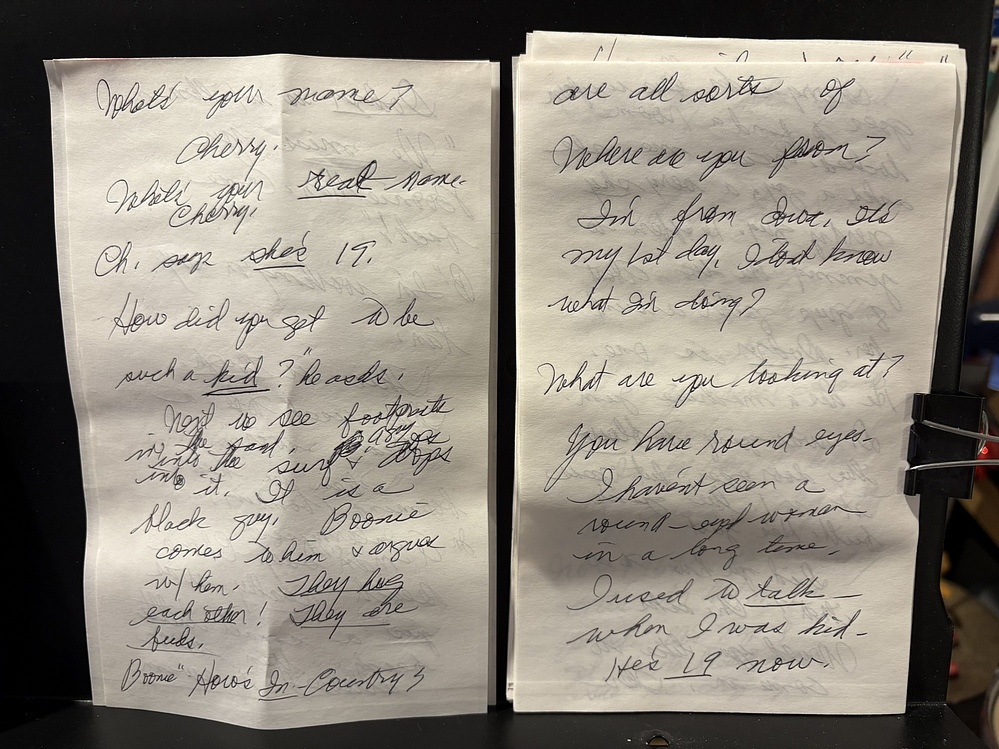 What's your name?
Cherry.
What's your real name.
Cherry.
Ch. says she's 19.
How did you get to be
such a kid?" he asks.
Next we see footprints
in the sand,
into the surf &
into it. It is a
black guy. Boonie
comes to him & argues
w/ him. They hug
each other! They are
buds.
Boonie" How's In-Country?
are all sorts of
Where are you from?
I'm from Iowa, it's
my 1st day, I don't know
what I'm doing?
What are you looking at?
You have round eyes-
I haven't seen a
round-eyed woman
in a long time.
I used to talk-
when I was kid-
He's 19 now.